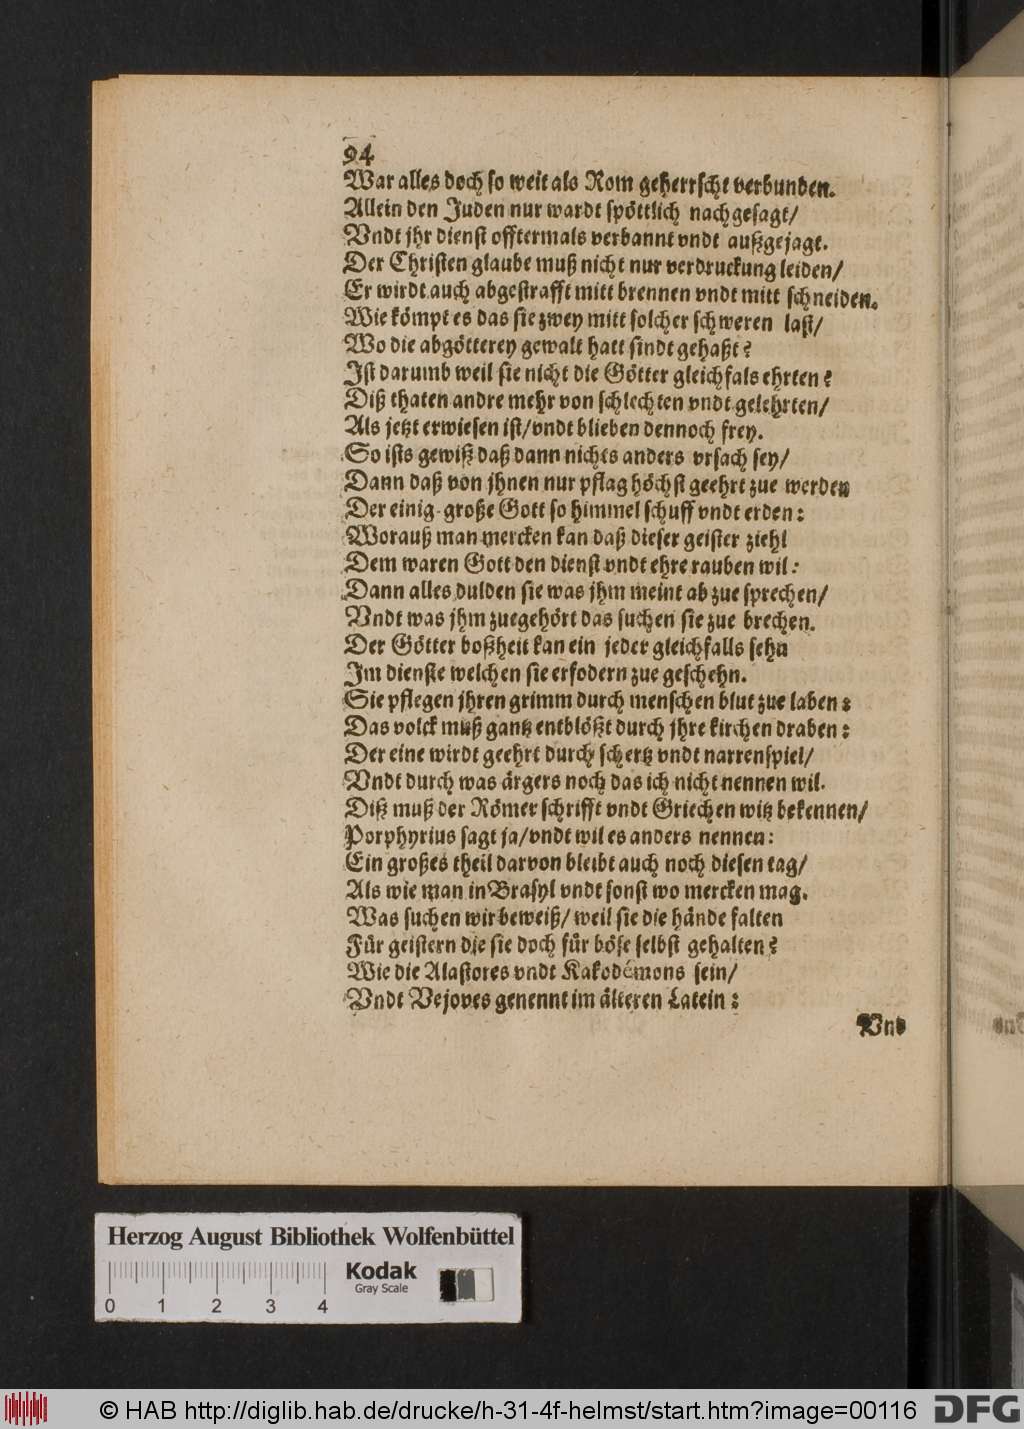 94
War alles doch so weit als Rom geherrscht verbunden.
Allein den Juden nur wardt spöttlich nachgesagt/
Vndt jhr dienst offtermals verbannt vndt außgejagt.
Der Christen glaube muß nicht nur verdruckung leiden/
Er wirdt auch abgestrafft mitt brennen vndt mitt schneiden.
Wie kömpt es das sie zwey mitt solcher schweren last/
Wo die abgötterey gewalt hatt sindt gehaßt?
Ist darumb weil sie nicht die Götter gleichfals ehrten?
Diß thaten andre mehr von schlechten vndt gelehrten/
Als jetzt erwiesen ist/vndt blieben dennoch frey.
So ists gewiß daß dann nichts anders vrsach sey/
Dann daß von jhnen nur pflag höchst geehrt zue werden
Der einig-große Gott so himmel schuff vndt erden:
Worauß man mercken kan daß dieser geister ziehl
Dem waren Gott den dienst vndt ehre rauben wil:
Dann alles dulden sie was jhm meint ab zue sprechen/
Vndt was jhm zuegehört das suchen sie zue brechen.
Der Götter boßheit kan ein jeder gleichfalls sehn
Im dienste welchen sie erfodern zue geschehn.
Sie pflegen jhren grimm durch menschen blut zue laben:
Das volck muß gantz entblößt durch jhre kirchen draben:
Der eine wirdt geehrt durch schertz vndt narrenspiel/
Vndt durch was ärgers noch das ich nicht nennen wil.
Diß muß der Römer schrifft vndt Griechen witz bekennen/
Porphyrius sagt ja/vndt wil es anders nennen:
Ein großes theil darvon bleibt auch noch diesen tag/
Als wie man in Brasyl vndt sonst wo mercken mag.
Was suchen wir beweiß/ weil sie die hände falten
Für geistern die sie doch für böse selbst gehalten?
Wie die Alastores vndt Kakodémons sein/
Vndt Vejoves genennt im älteren Latein:
Vnd
Herzog August Bibliothek Wolfenbüttel
Kodak
Gray Scale
0 1 2 3 4
© HAB http://diglib.hab.de/drucke/h-31-4f-helmst/start.htm?image=00116
DFG